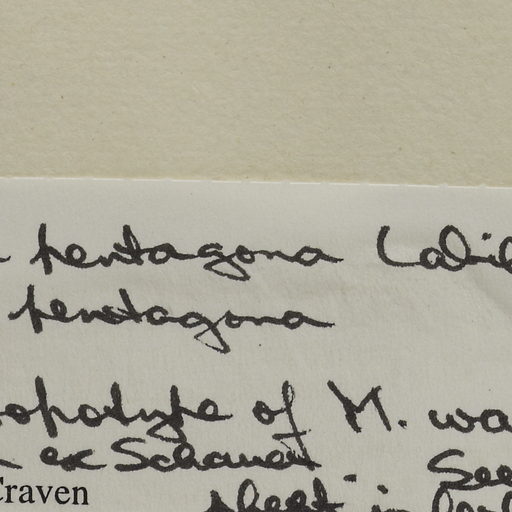 pentagona Labil
pentagona
opotype of M. wa
ex Schauer See
Craven sheet in